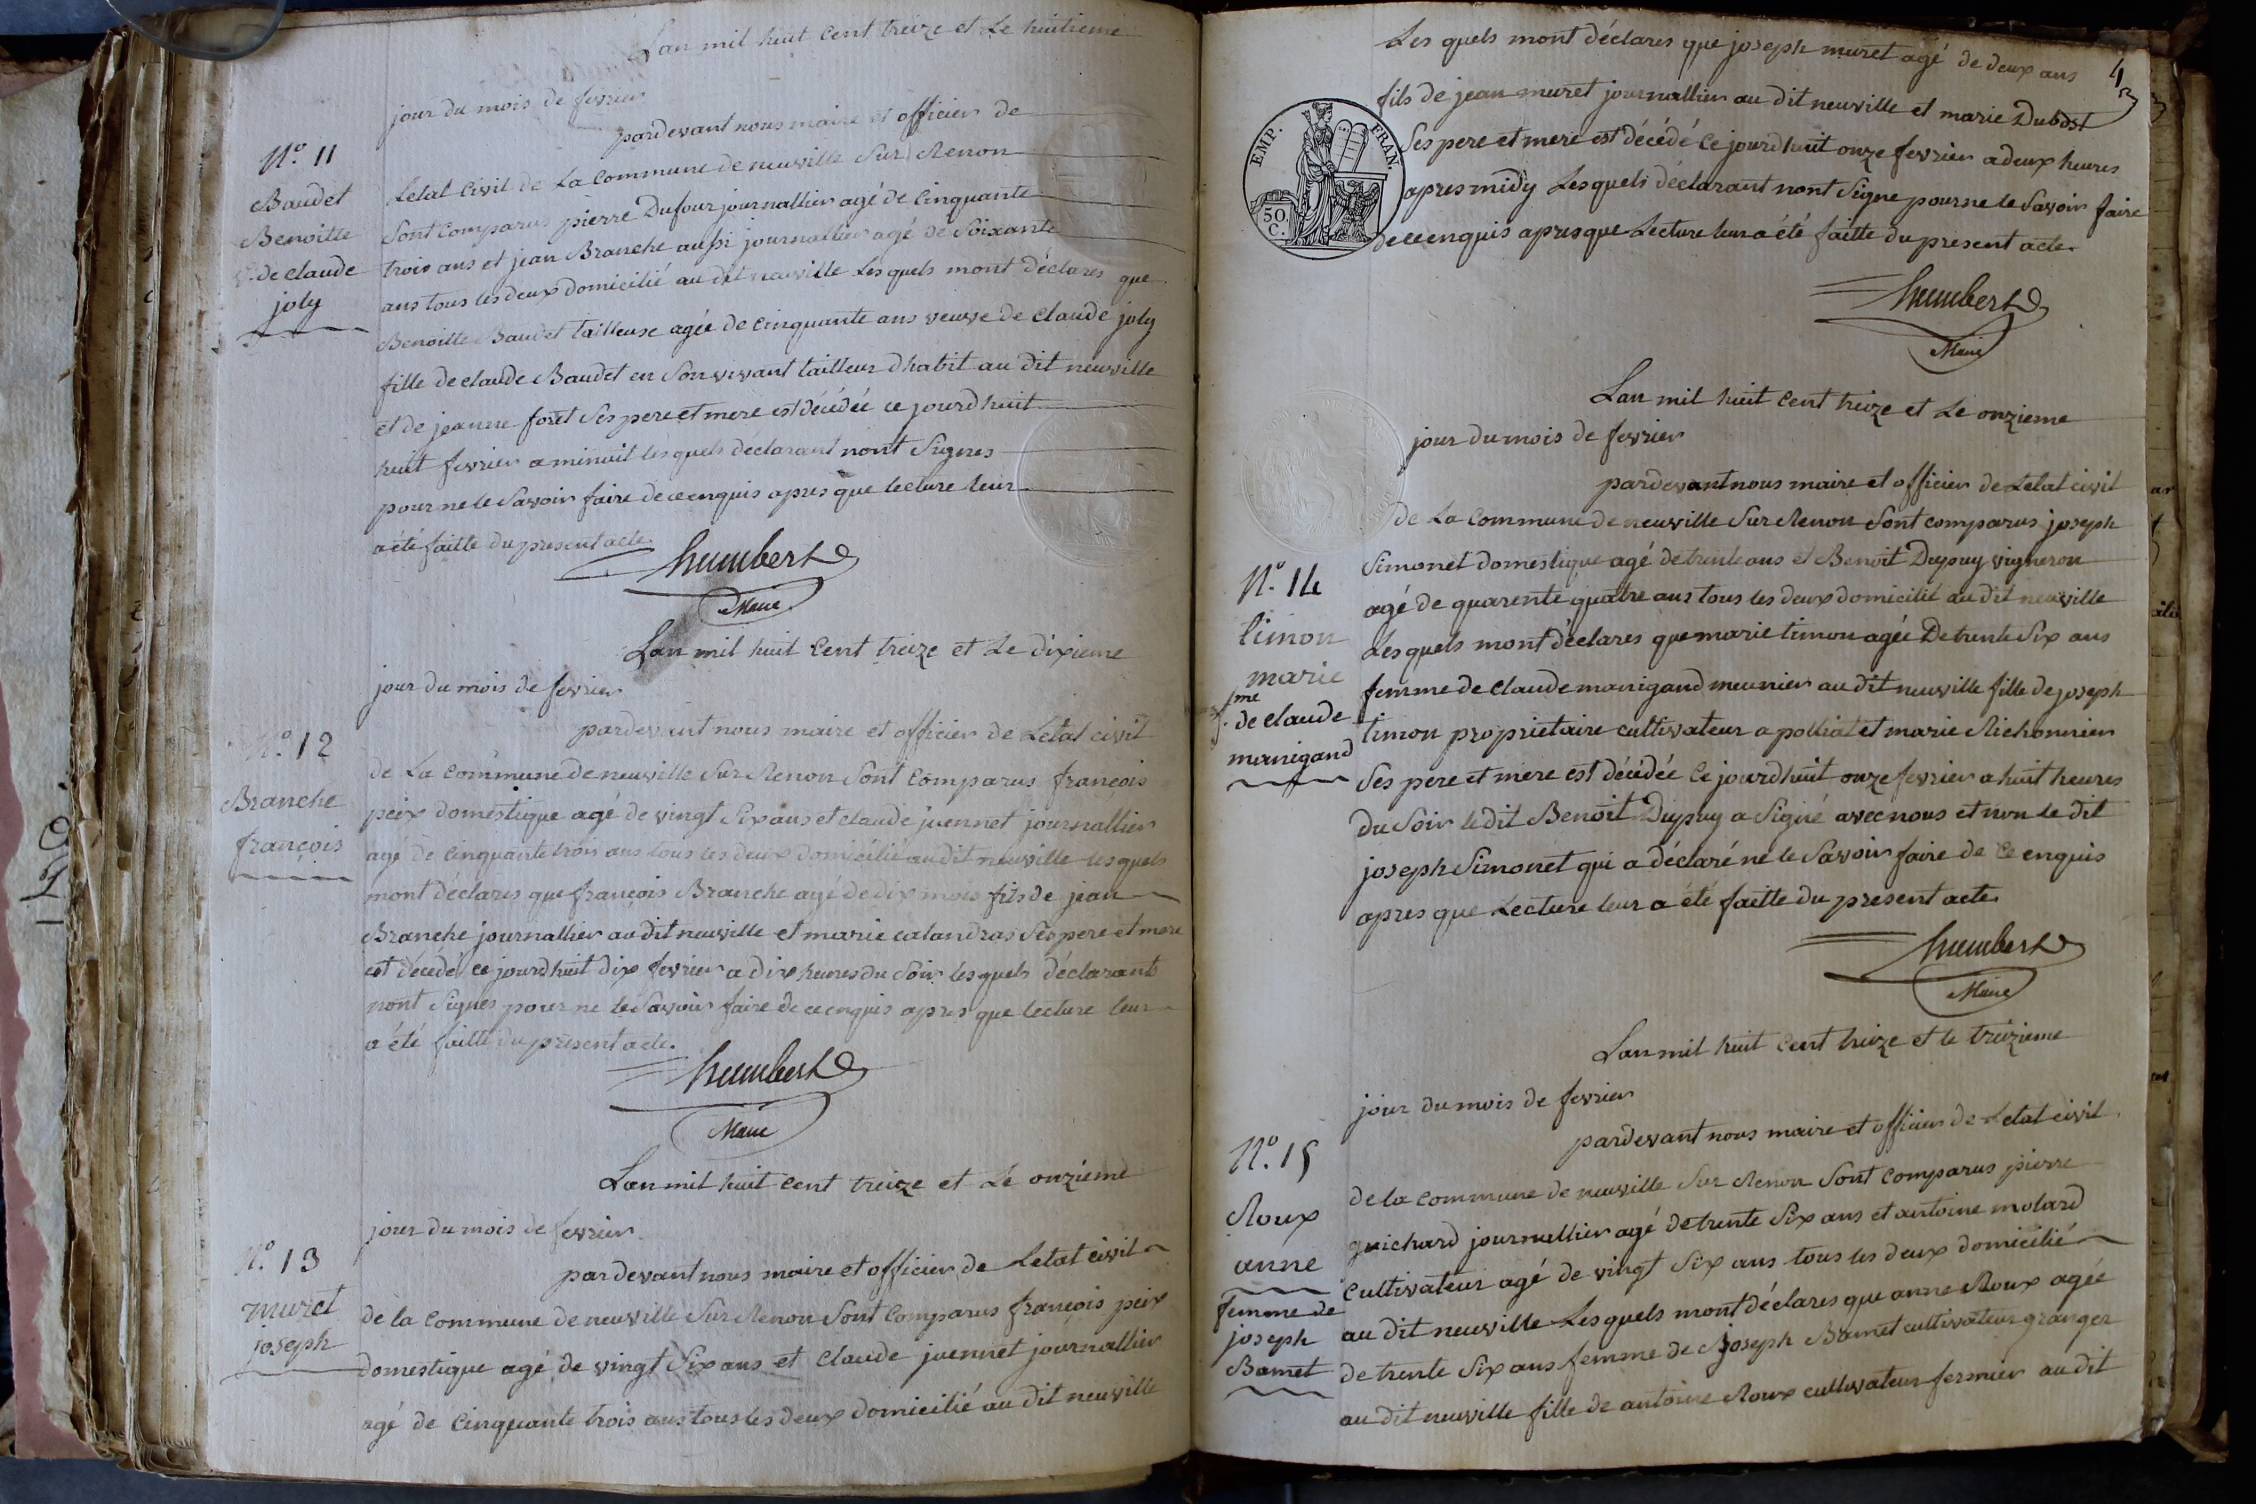 Lan mil huit Cent treize et Le huitieme
jour du mois de fevrier
pardevant nous maire et officier de
N.o 11
Baudet
Benoitte
v.e de claude
joly
Letat Civil de La Commune de neuville Sur Renon
Sont Comparus pierre Dufour journallier agé de Cinquante
trois ans et jean Branche aussi journallier agé de Soixante
ans tous les deux domicilié au dit neuville Les quels mont déclares que
Benoitte Baudet tailleuse agée de cinquante ans veuve de Claude joly
fille de claude Baudet en Son vivant tailleur dhabit au dit neuville
et de jeanne foret Ses pere et mere est décédée ce jourdhuit
huit fevrier a minuit les quels declarant nont Signes
pour ne le Savoir faire de ce enquis apres que lecture leur
a été faitte du present acte.
humbert
Maire
Lan mil huit Cent treize et Le dixieme
jour du mois de fevrier
pardevant nous maire et officier de Letat civil
N.o 12
Branche
françois
de La Commune de neuville Sur Renon Sont Comparus françois
peix domestique agé de vingt Six ans et claude juennet journallier
agé de Cinquante trois ans tous les deux domicilié au dit neuville les quels
mont déclares que françois Branche agé de dix mois fils de jean
Branche journallier au dit neuville et marie calandras Ses pere et mere
est décédé ce jourdhuit dix fevrier a dix heures du Soir les quels déclarant
nont Signes pour ne le Savoir faire de ce enquis apres que lecture leur
a été faitte du present acte.
humbert
Maire
Lan mil huit Cent treize et Le onzieme
jour du mois de fevrier
pardevant nous maire et officier de Letat civil
N.o 13
muret
joseph
de la Commune de neuville Sur Renon Sont Comparus françois peix
domestique agé de vingt Six ans et Claude juennet journallier
agé de Cinquante trois ans tous les deux domicilié au dit neuville
4
Les quels mont déclares que joseph muret agé de deux ans
fils de jean muret journallier au dit neuville et marie Dubost
EMP. FRAN.
50. C.
Ses pere et mere est décédé Ce jourdhuit onze fevrier a deux heures
apres midy Les quels déclarant nont Signe pour ne le Savoir faire
de ce enquis apres que Lecture leur a été faitte du present acte.
humbert
Maire
Lan mil huit Cent treize et Le onzieme
jour du mois de fevrier
pardevant nous maire et officier de Letat civil
de La Commune de neuville Sur Renon Sont comparus joseph
N.o 14
timon
marie
f.me de claude
manigand
Simonet domestique agé de trente ans et Benoit Dupuy vigneron
agé de quarente quatre ans tous les deux domicilié au dit neuville
Les quels mont déclares que marie timon agée De trente Six ans
femme de Claude manigand meunier au dit neuville fille de joseph
timon proprietaire cultivateur a polliat et marie Richonnier
Ses pere et mere est décédée Ce jourdhuit onze fevrier a huit heures
du Soir le dit Benoit Dupuy a Signé avec nous et non le dit
joseph Simonet qui a déclaré ne le Savoir faire de Ce enquis
apres que Lecture leur a été faitte du present acte.
humbert
Maire
Lan mil huit Cent treize et le treizieme
jour du mois de fevrier
pardevant nous maire et officier de Letat civil
N.o 15
Roux
anne
femme de
joseph
Bamet
de la Commune de neuville Sur Renon Sont Comparus pierre
guichard journallier agé de trente Six ans et antoine molard
Cultivateur agé de vingt Six ans tous les deux domicilié
au dit neuville Les quels mont déclares que anne Roux agée
de trente Six ans femme de joseph Bamet cultivateur granger
au dit neuville fille de antoine Roux cultivateur fermier au dit